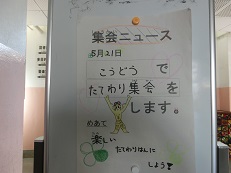 集会ニュース
5月21日
こうどう で
たてわり集会 を
します。
めあて
楽しい
たてわりはんに
しよう!